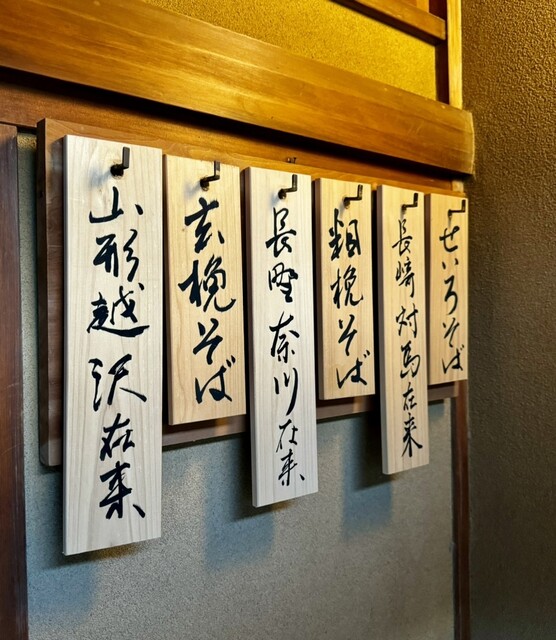 せいろそば
長崎対馬在来
粗挽そば
長野奈川在来
玄挽そば
山形越沢在来